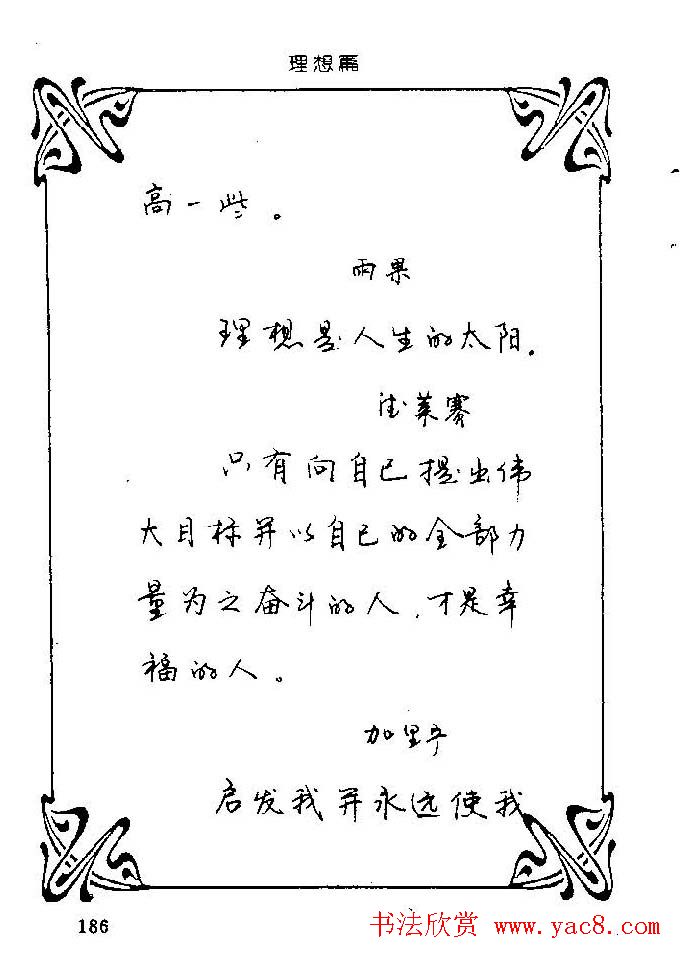 理想篇
高一些。
雨果
理想是人生的太阳.
德莱赛
只有向自己提出伟
大目标并以自己的全部力
量为之奋斗的人,才是幸
福的人。
加里宁
启发我并永远使我
186
书法欣赏 www.yac8.com